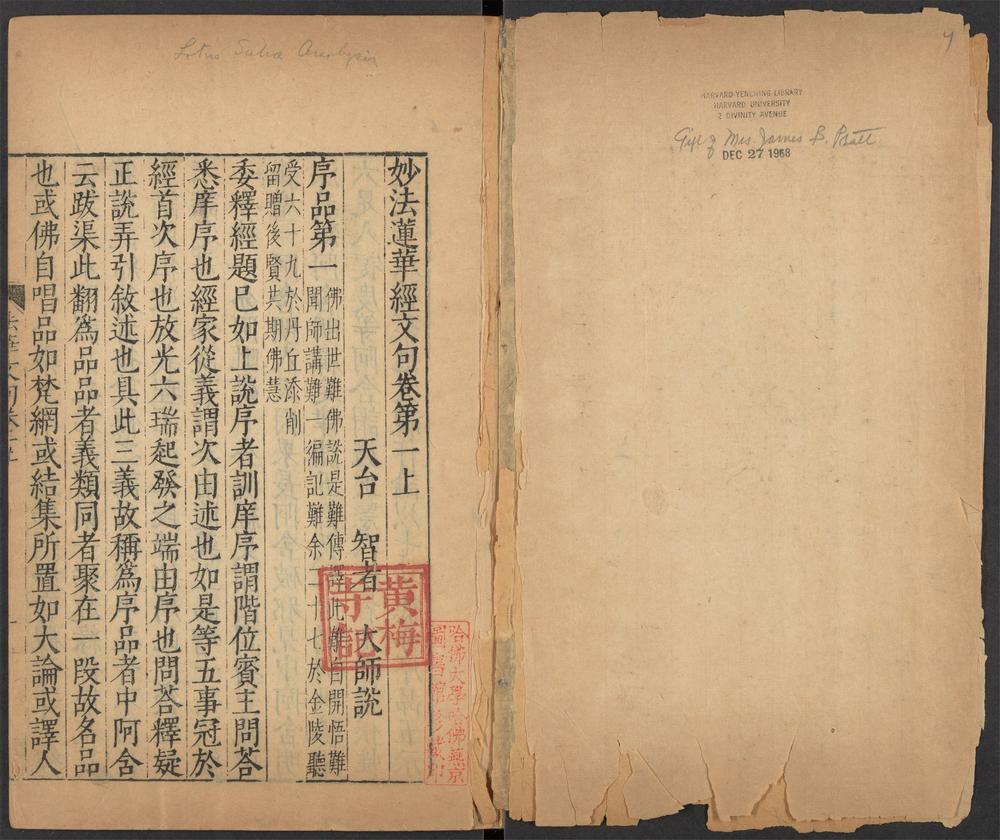 Lotus Sutra Analysis
妙法蓮華經文句卷第一上
天台 智者 大師説
序品第一
佛出世難佛説是難傳譯此難自開悟難
聞師講難一徧記難余二十七於金陵聽
受六十九於丹丘添削
留贈後賢共期佛慧
委釋經題已如上説序者訓庠序謂階位賓主問荅
悉庠序也經家從義謂次由述也如是等五事冠於
經首次序也放光六瑞起發之端由序也問荅釋疑
正説弄引敘述也具此三義故稱爲序品者中阿含
云跋渠此翻爲品品者義類同者聚在一段故名品
也或佛自唱品如梵網或結集所置如大論或譯人
黃梅
寺記
哈佛大學哈佛燕京
圖書館珍藏印
HARVARD-YENCHING LIBRARY
HARVARD UNIVERSITY
2 DIVINITY AVENUE
Gift of Mrs. James B. Pratt
DEC 27 1968